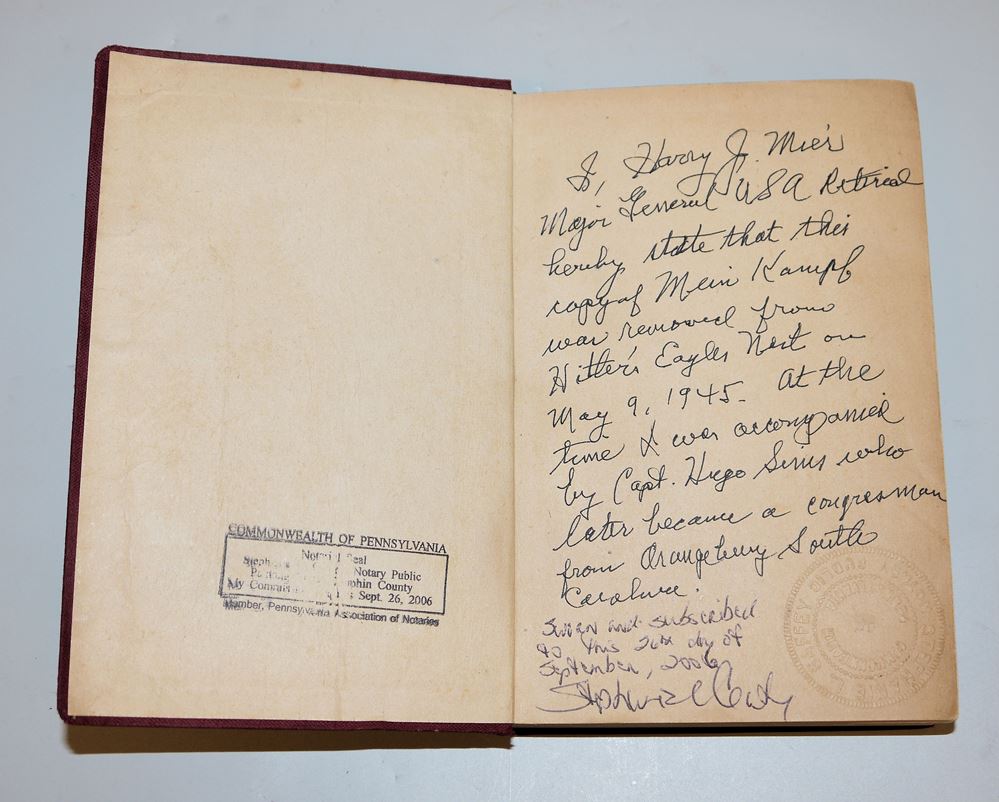 COMMONWEALTH OF PENNSYLVANIA
Notarial Seal
Notary Public
County
Sept. 26, 2006
Member, Pennsylvania Association of Notaries
I, Harry J. Mier
Major General USA Retired
hereby state that this
copy of Mein Kampf
was removed from
Hitler's Eagles Nest on
May 9, 1945. At the
time I was accompanied
by Capt. Hugo Sims who
later became a congresman
from Orangeburg South
Carolina.
Sworn and subscribed
to this 26th day of
September, 2006